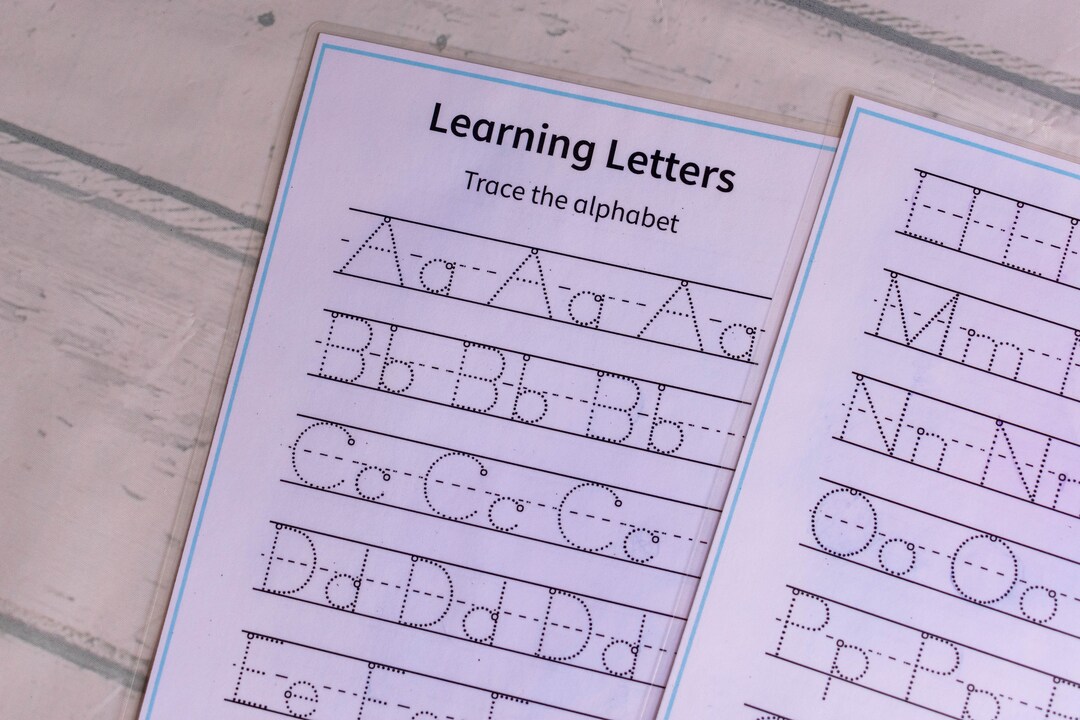 Learning Letters
Trace the alphabet
Aa Aa Aa
Bb Bb Bb
Cc Cc Cc
Dd Dd Dd
Ee
Ll Ll
Mm
Nn Nn
Oo Oo
Pp Pp